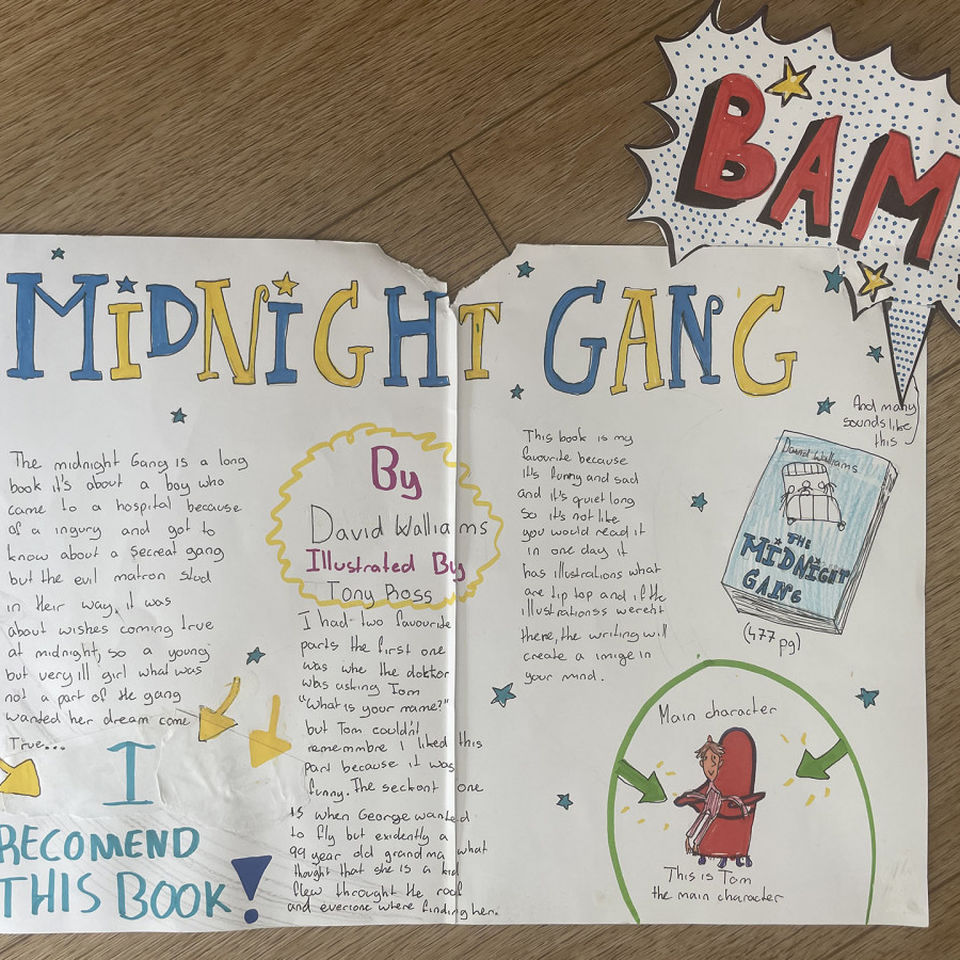 BAM
MiDNiGHT GANG
The midnight Gang is a long
book it's about a boy who
came to a hospital because
of a ingury and got to
know about a secreat gang
but the evil matron stod
in their way, it was
about wishes coming true
at midnight, so a young
but very ill girl what was
not a part of the gang
wanted her dream come
True...
I
RECOMEND
THIS BOOK!
By
David Walliams
Illustrated By
Tony Ross
I had two favourite
parts the first one
was whe the doktor
was asking Tom
"What is your name?"
but Tom couldn't
rememmbre I liked this
part because it was
funny. The seckont one
is when George wanted
to fly but exidently a
99 year old grandma what
thought that she is a kid
flew throught the roof
and everione where finding her.
This book is my
favourite because
it's funny and sad
and it's quiet long
so it's not like
you would read it
in one day it
has illustrations what
are tip top and if the
illustrationss wereht
there, the writing will
create a imige in
your mind.
And many
sounds like
this
David Walliams
THE
MiDNiGHT
GANG
(477 pg)
Main character
This is Tom
the main character